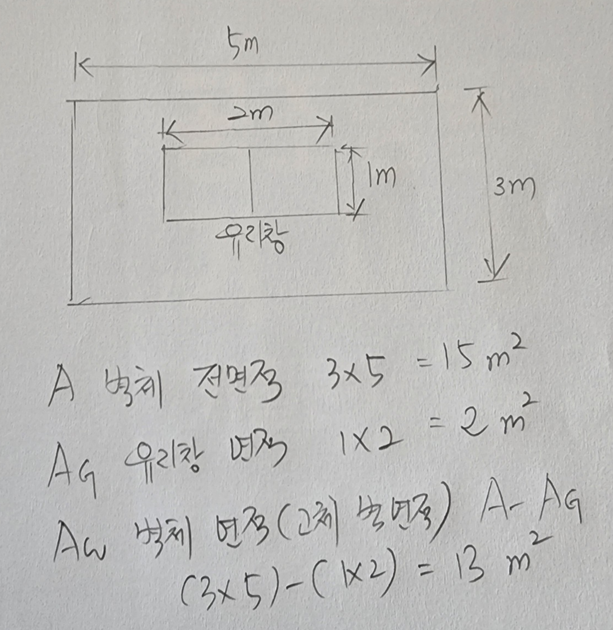 5m
2m
1m
3m
유리창
A 벽체 전면적 3×5 = 15 m²
AG 유리창 면적 1×2 = 2 m²
Aw 벽체 면적(고체 벽면적) A - AG
(3×5)-(1×2) = 13 m²